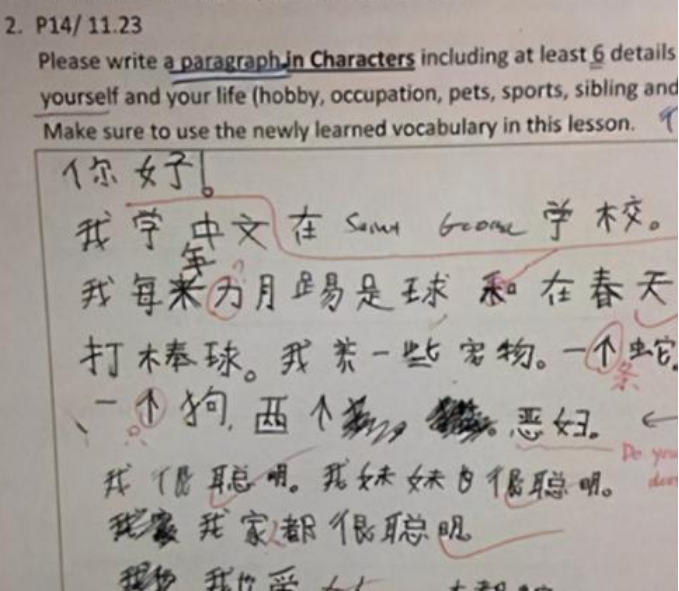 2. P14/ 11.23
Please write a paragraph in Characters including at least 6 details
yourself and your life (hobby, occupation, pets, sports, sibling and
Make sure to use the newly learned vocabulary in this lesson.
你好!
我学中文在 George 学校。
年
我每来为月踢是球和在春天
打棒球。我养一些宠物。一个蛇
条
、一个狗,两个 恶妇。
Do you
我很聪明。我妹妹白很聪明。
我家都很聪明
我 爱